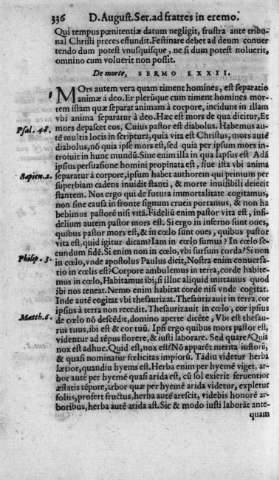 336 D. August. Ser. ad fratres in eremo.
Qui tempus pœnitentiæ datum negligit, frustra ante tribu-
nal Christi preces effundit. Festinare debet ad deum conuer
tendo dum potest vnusquisque, ne si dum potest noluerit,
omnino cum voluerit non possit.
De morte, SERMO XXXII.
MOrs autem vera quam timent homines, est separatio
animæ à deo. Et plerũque cum timent homines mor-
tem istam quæ separat animam à corpore, incidunt in illam
vbi anima separatur à deo. Hæc est mors de qua dicitur, Et
Psal. 48.
mors depascet eos, Cuius pastor est diabolus. Habemus aũ-
tẽ multis locis in scripturi, quia vita est Christus, mors autẽ
diabolus, nõ quia ipse mors est, sed quia per ipsum mors in-
troiuit in hunc mundũ. Siue enim illa in qua lapsus est Adã
ipsius persuasione homini propinata est, siue ista vbi anima
Sapien. 2.
separatur à corpore, ipsum habet authorem qui primum per
superbiam cadens inuidit stanti, & morte inuisibili deiecit
stantem. Nos ergo qui de futura immortalitate cogitamus,
non sine causa in fronte signum crucis portamus, & non ha
bebimus pastorẽ nisi vitã. Fidelìũ enim pastor vita est, infi-
delium autem pastor mors est. Si ergo in inferno sunt oues,
quibus pastor mors est, & in cœlo sunt oues, quibus pastor
vita est, quid igitur dicam? Iam in cœlo sumus? In cœlo se-
cundum fidẽ. Si enim non in cœlo, vbi sursum corda? Si non
Philip. 3.
in cœlo, vnde apostolus Paulus dicit, Nostra enim conuersa-
tio in cœlis est? Corpore ambulemus in terra, corde habite-
mus in cœlo, Habitamus ibi, si illuc aliquid mittamus quod
ibi nos teneat. Nemo enim habitat corde nisi vnde cogitat.
Inde autẽ cogitat vbi thesaurizat. Thesaurizauit in terra, cor
ipsius à terra non recedit. Thesaurizauit in cœlo, cor ipsius
Matth. 6.
de cœlo nõ descẽdit, domino aperte dicẽte, Vbi est thesau-
rus tuus, ibi est & cor tuũ. Ipsi ergo quibus mors pastor est,
videntur ad tẽpus florere, & iusti laborare. Sed quare? Quia
nox est adhuc. Quid est, nox est? Nõ apparẽt merita iustorũ,
& quasi nominatur fœlicitas impiorũ. Tãdiu videtur herba
lætior, quandiu hyems est. Herba enim per hyemẽ viget, ar-
bor autẽ per hyemẽ quasi arida est, cũ sol exierit feruentior
æstatis tẽpore, arbor quæ per hyemẽ arida videtur, expletur
folijs, profert fructus, herba autẽ arescit, videbis honorẽ ar-
boribus, herba autẽ arida est. Sic & modo iusti laborãt ante-
quam